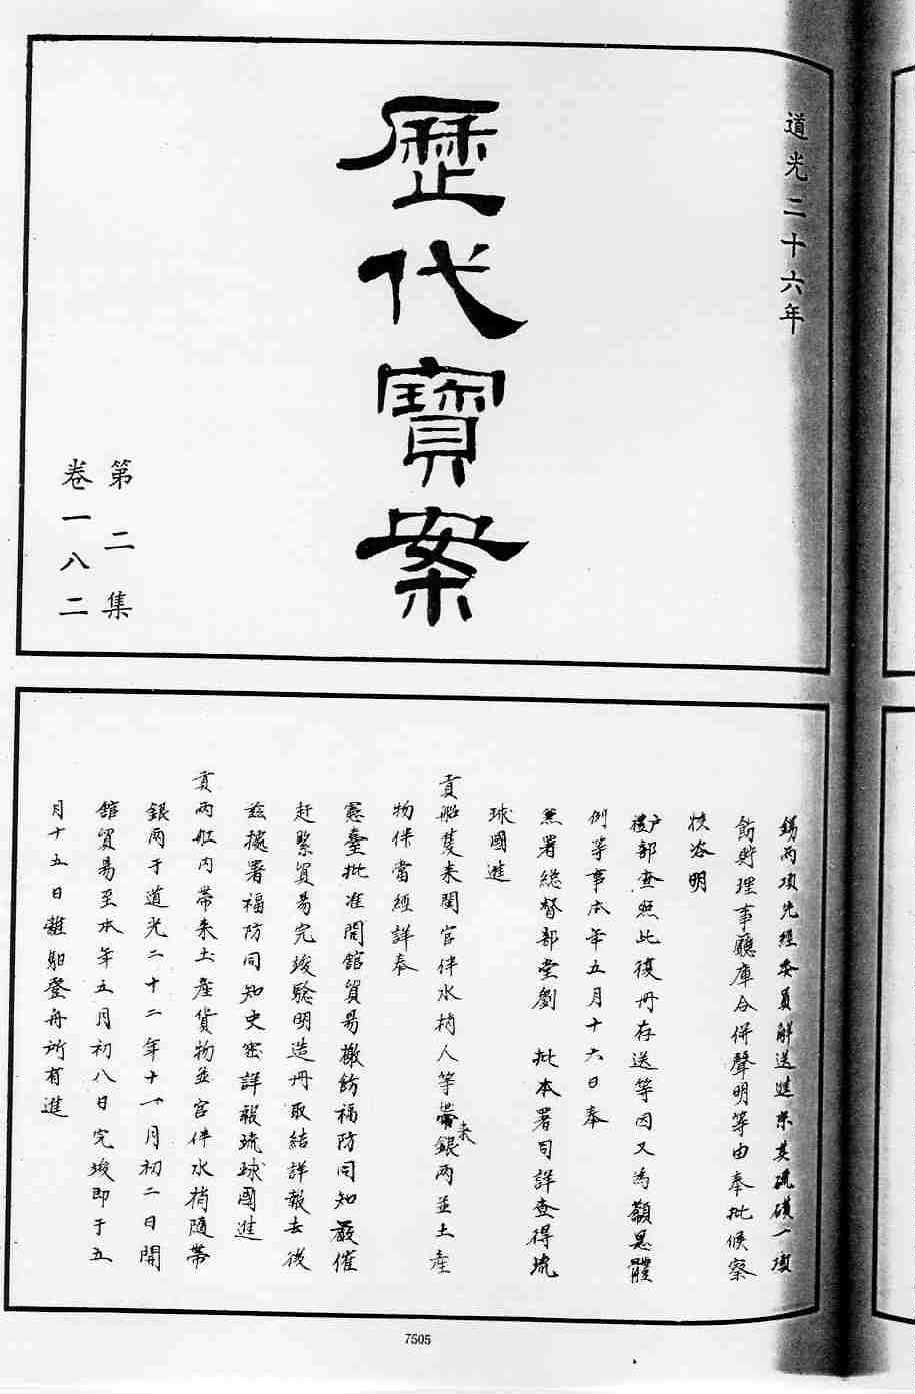 道光二十六年
歷代寶案
第二集
卷一八二
錫兩項先經委員解送進京其硫磺一項
飭貯理事廳庫合併聲明等由奉批候察
核咨明
禮戶部查照此復冊存送等因又為籲恩體
例等事本年五月十六日奉
兼署總督部堂劉 批本署司詳查得琉
球國進
貢船隻來閩官伴水梢人等帶來銀兩並土產
物件當經詳奉
憲臺批准開館貿易檄飭福防同知嚴催
赶緊貿易完竣驗明造冊取結詳報去後
茲據署福防同知史密詳報琉球國進
貢兩船內帶來土產貨物並官伴水梢隨帶
銀兩于道光二十二年十一月初二日開
館貿易至本年五月初八日完竣即于五
月十五日離馹登舟所有進
7505